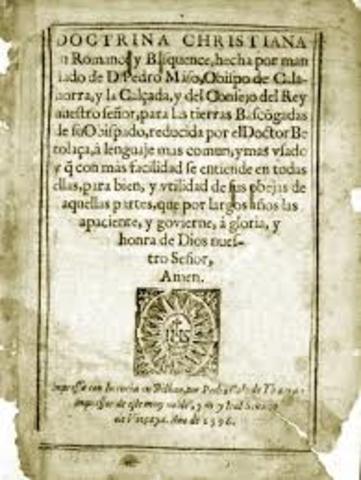 DOCTRINA CHRISTIANA
n Romance, y Basquence, hecha por man
dado de D. Pedro Mãso, Obispo de Cala-
horra, y la Calçada, y del Consejo del Rey
nuestro señor, para las tierras Bascõgadas
de su Obispado, reducida por el Doctor Be
tolaça, à lenguaje mas comun, y mas vsado
y q̃ con mas facilidad se entiende en todas
ellas, para bien, y vtilidad de sus obejas de
aquellas partes, que por largos años las
apaciente, y govierne, à gloria, y
honra de Dios nues-
tro Señor,
Amen.
IHS
Impressa con licencia en Bilbao, por Pedro
impressor de
Año de 1596.